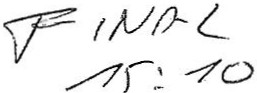 FINAL
15:10